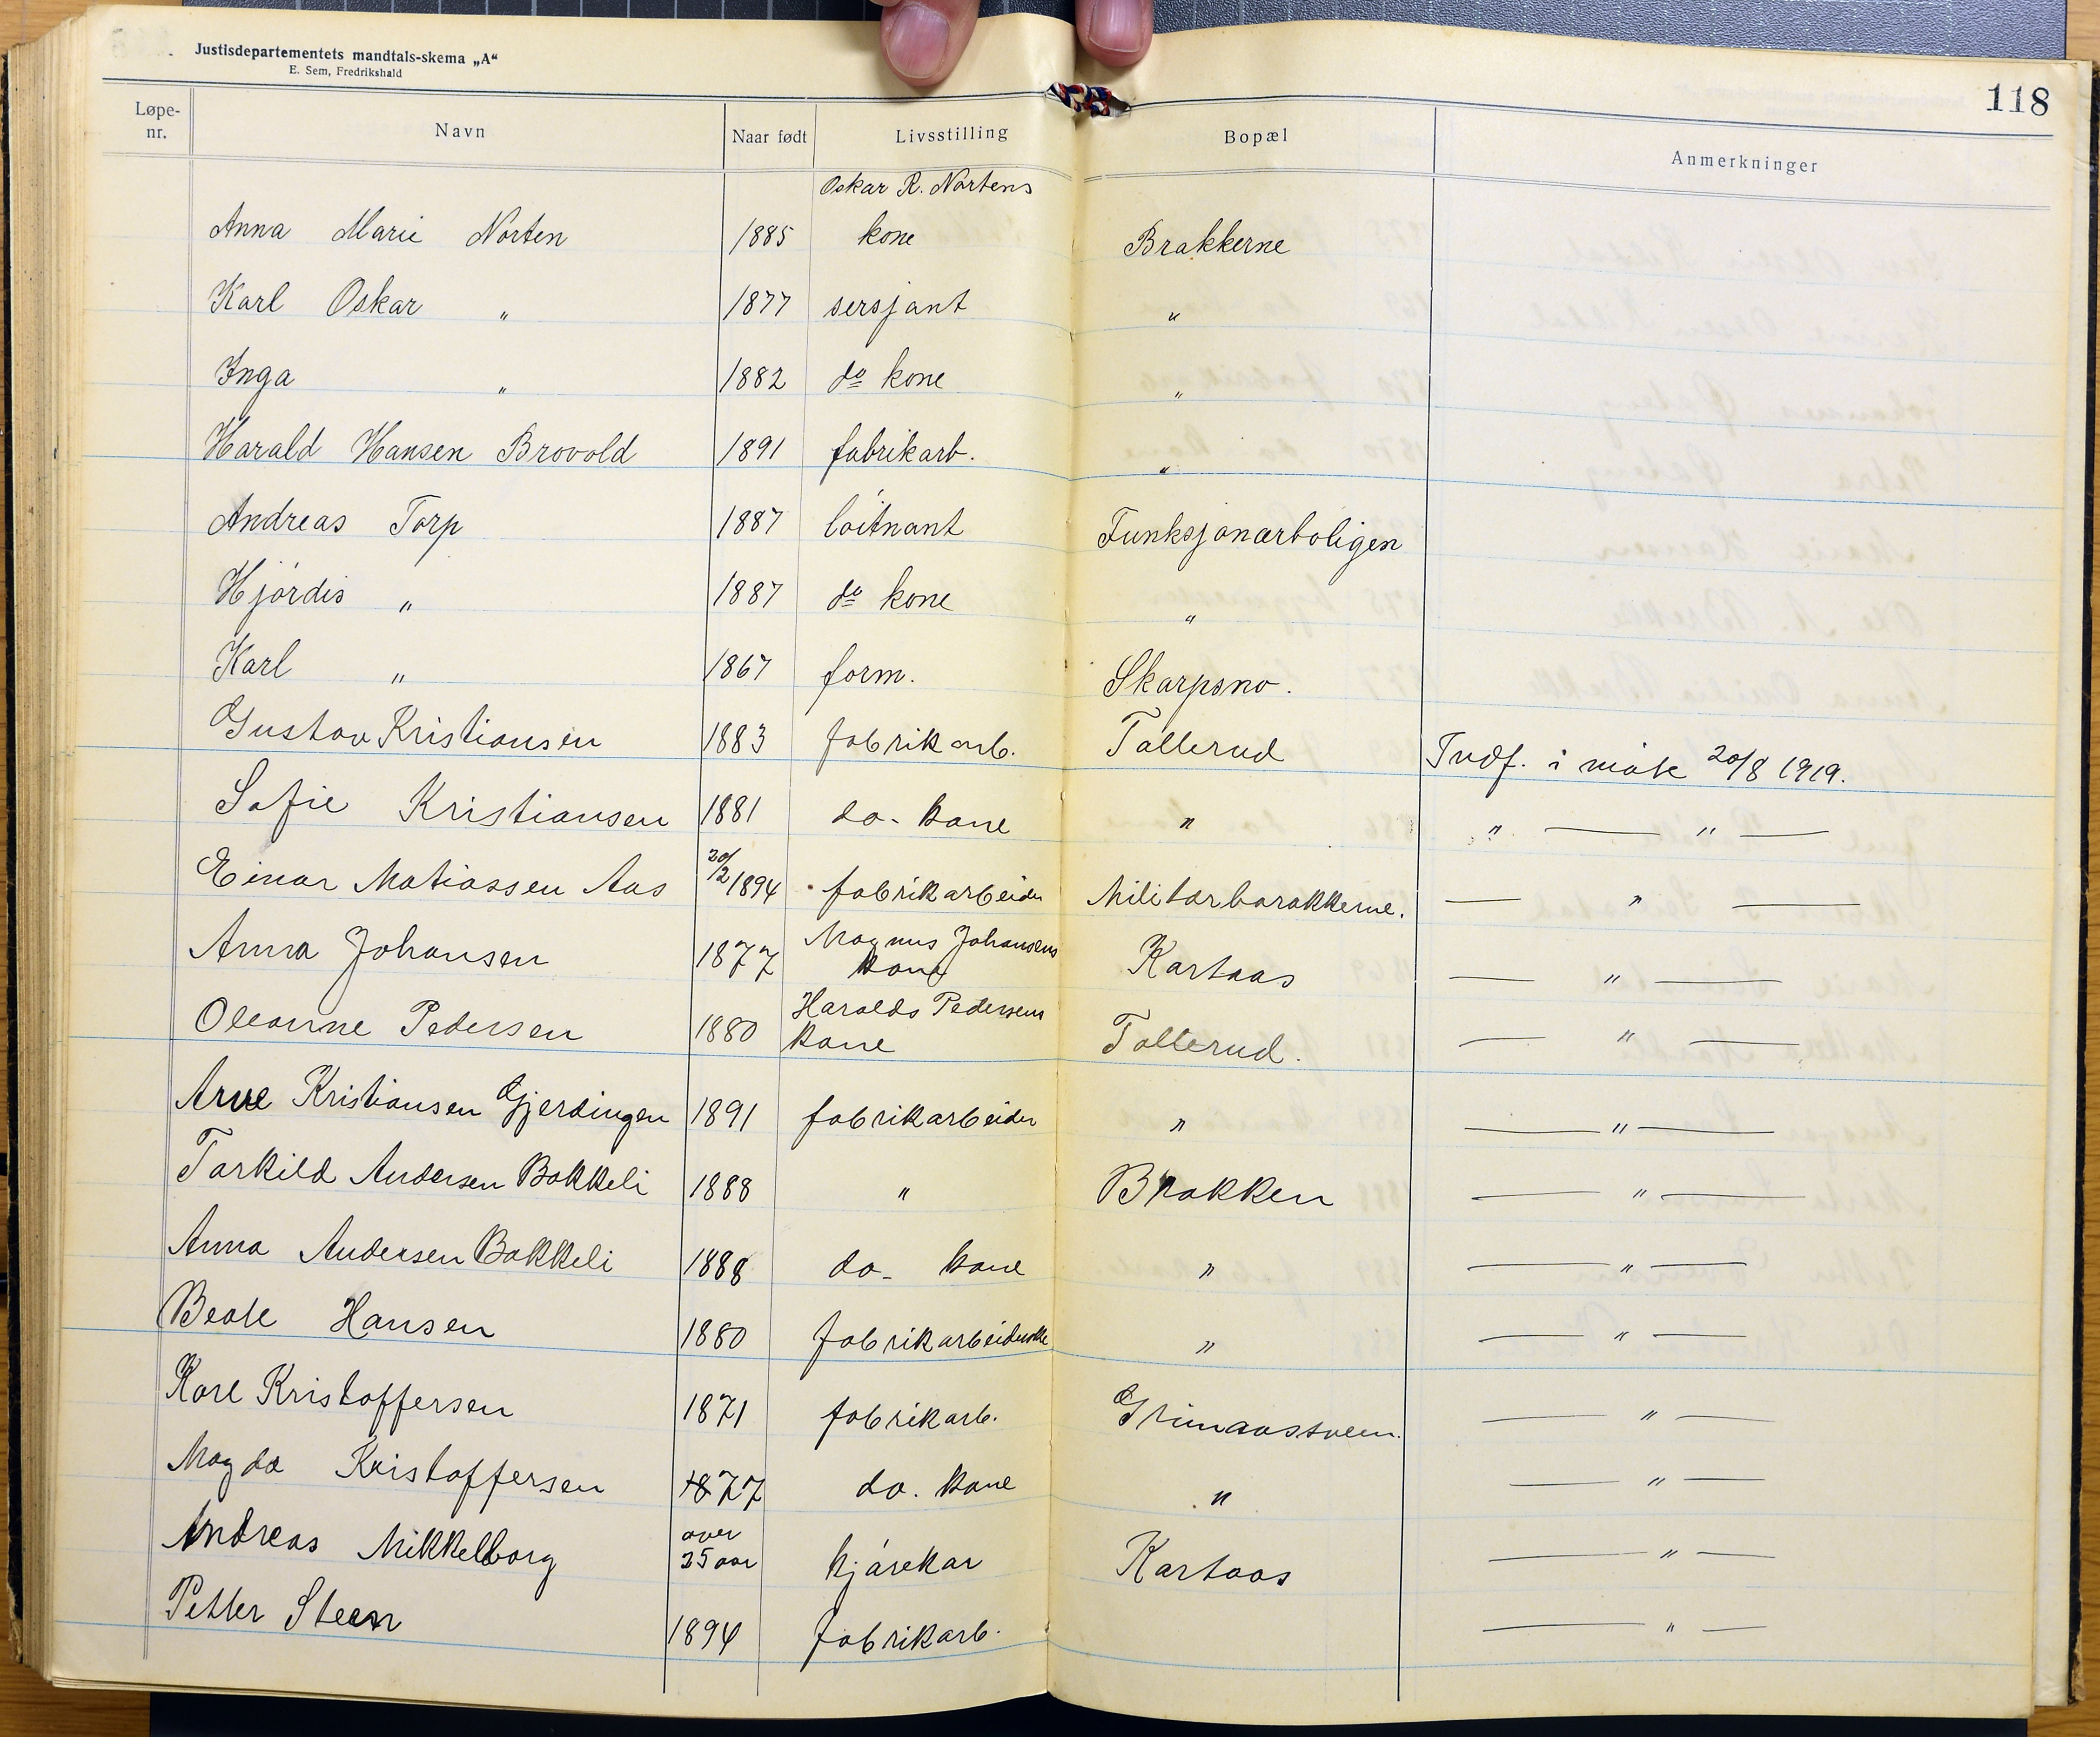 Justisdepartementets mandtals-skema „A“
E. Sem, Fredrikshald
118
Løpe-nr. Navn Naar født Livsstilling Bopæl Anmerkninger
Oskar R. Nortens
Anna Marie Norten 1885 kone Brakkerne
Karl Oskar " 1877 sersjant "
Inga " 1882 do kone "
Harald Hansen Brovold 1891 fabrikarb. "
Andreas Torp 1887 löitnant Funksjonærboligen
Hjördis " 1887 do kone "
Karl " 1867 form. Skarpsno.
Gustav Kristiansen 1883 fabrikarb. Tollerud Indf. i möte 20/8 1919.
Sofie Kristiansen 1881 do- kone " " — " —
Einar Matiassen Aas 20/2 1894 fabrikarbeider Militærbarakkerne. — " —
Anna Johansen 1877 Magnus Johansens kone Kartaas — " —
Oleanne Pedersen 1880 Haralds Pedersens kone Tollerud. — " —
Arne Kristiansen Gjerdingen 1891 fabrikarbeider " — " —
Torkild Andersen Bakkeli 1888 " Brakken — " —
Anna Andersen Bakkeli 1888 do- kone " — " —
Beate Hansen 1880 fabrikarbeiderske " — " —
Karl Kristoffersen 1871 fabrikarb. Grimaassveen. — " —
Magda Kristoffersen 1877 do. kone " — " —
Andreas Mikkelborg over 25 aar kjörekar Kartaas — " —
Petter Steen 1894 fabrikarb. — " —